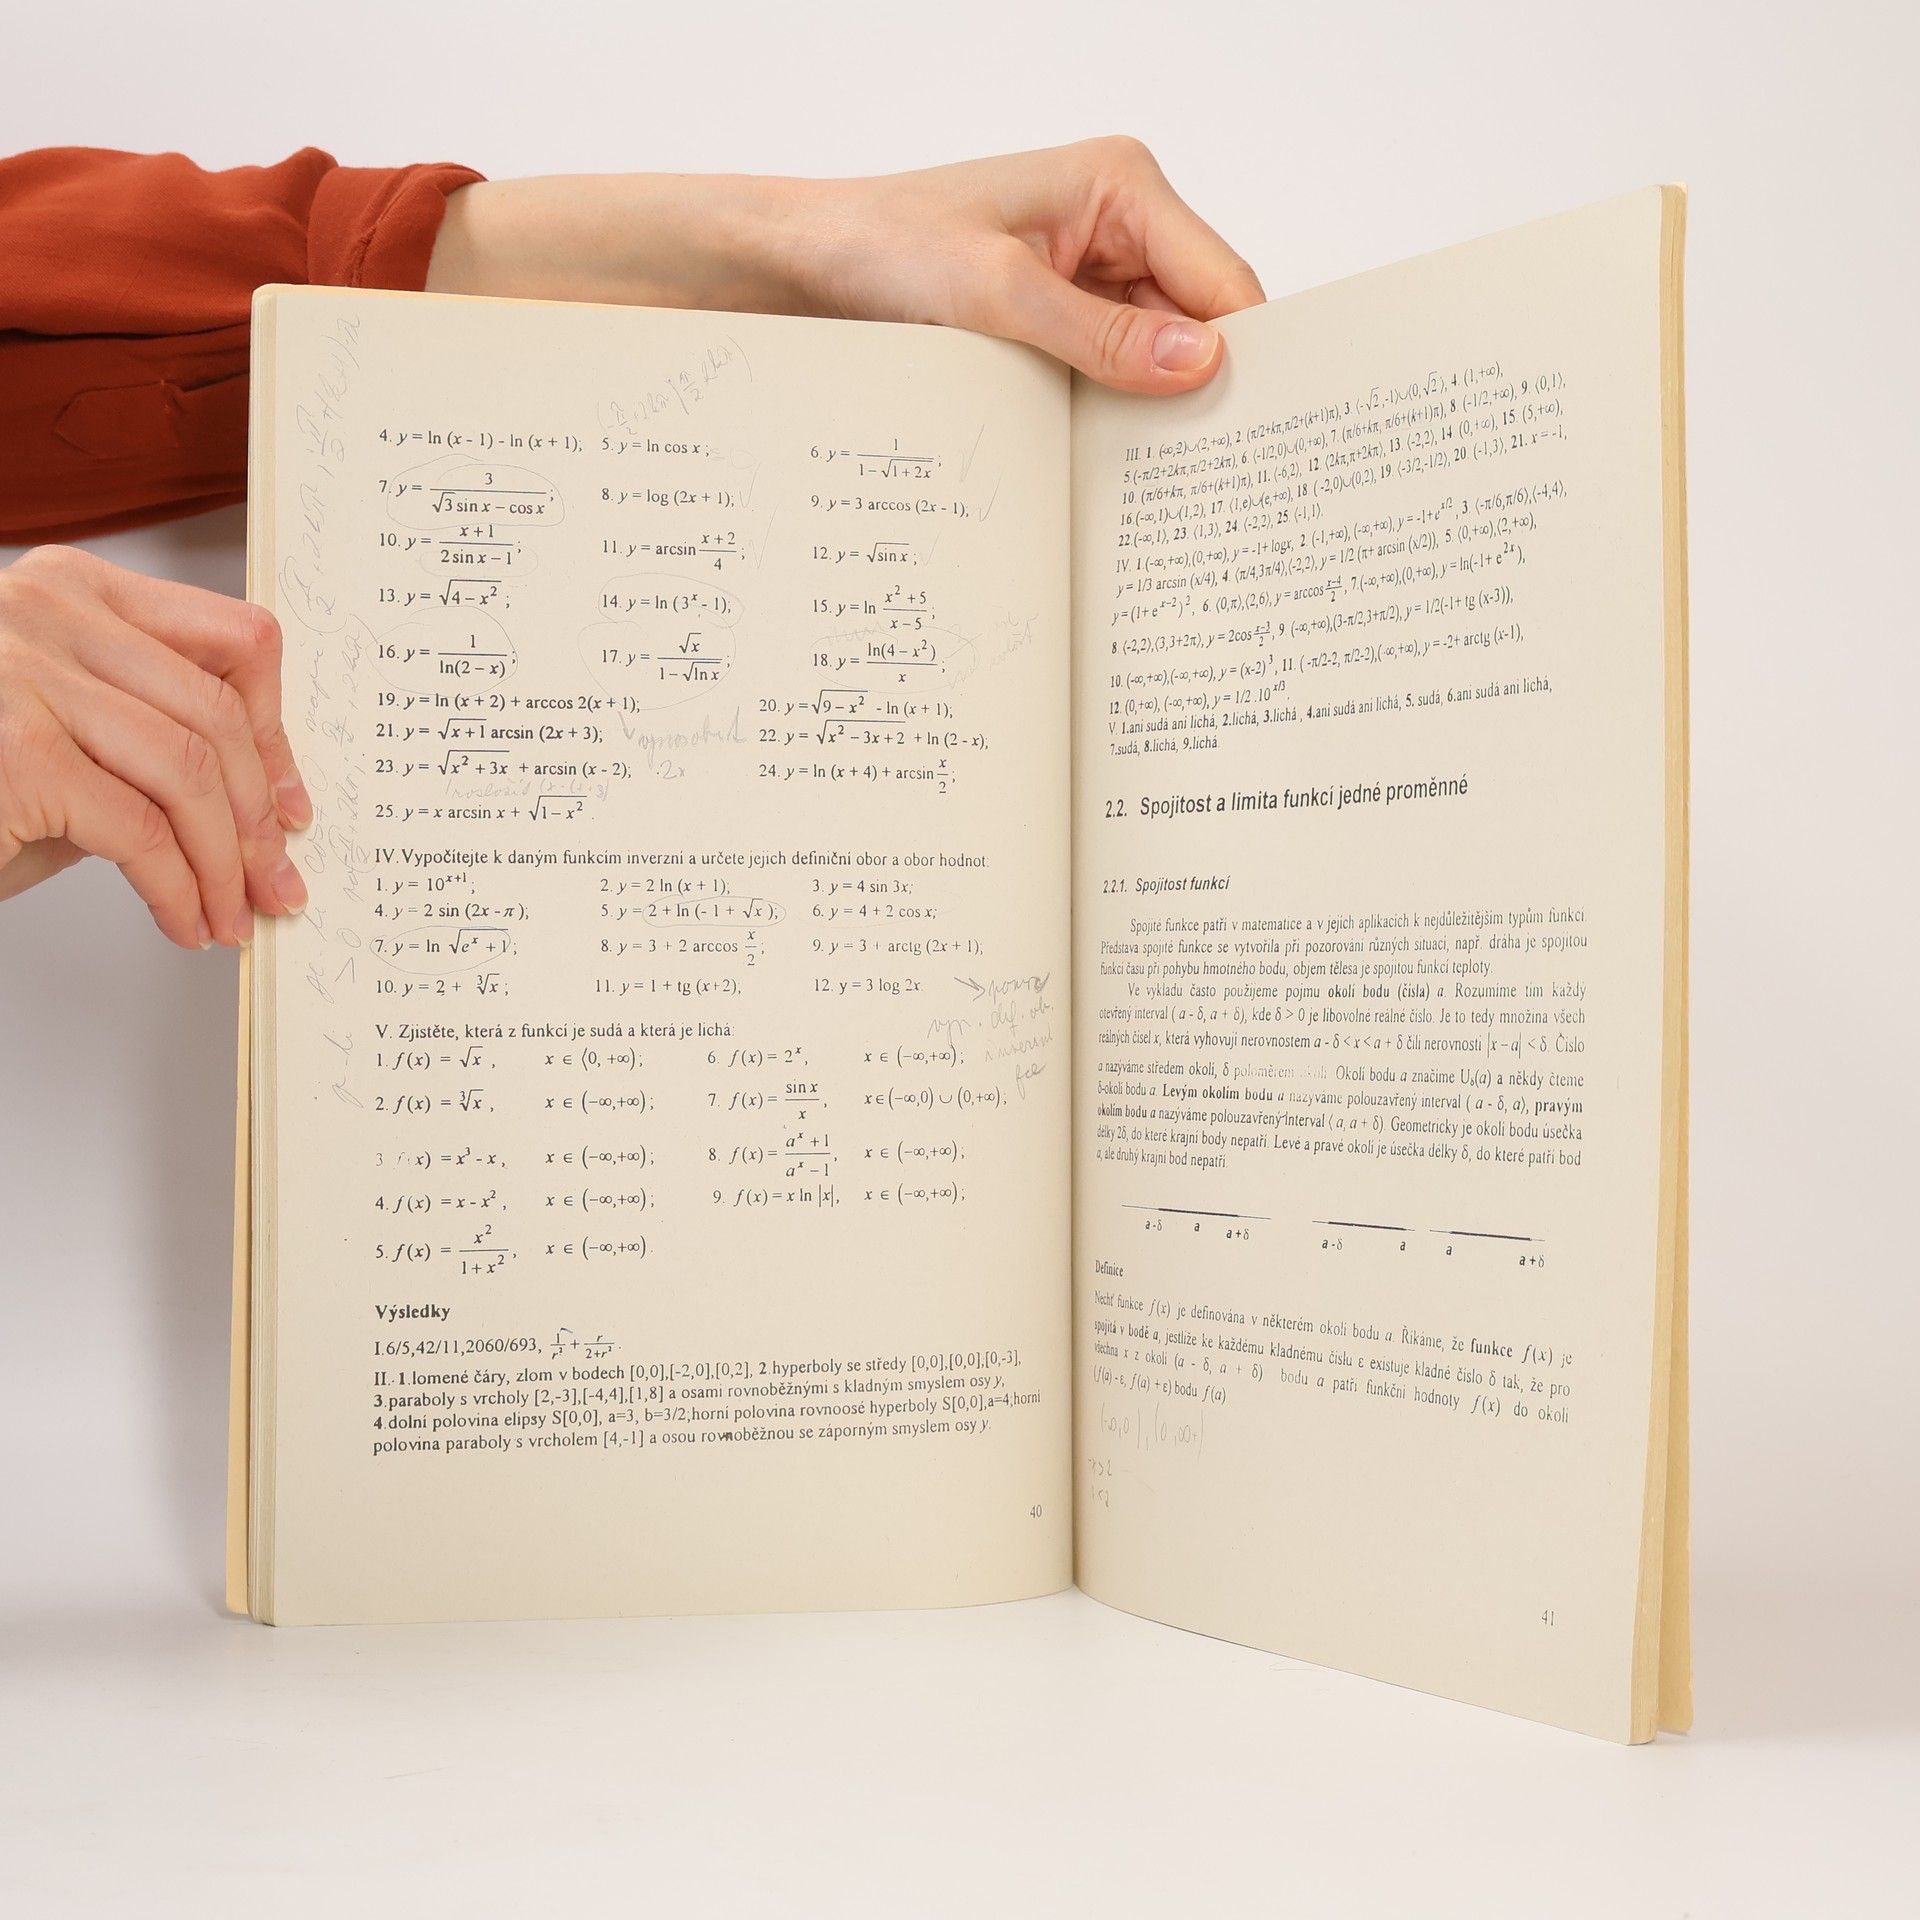 4. y = ln (x - 1) - ln (x + 1); 5. y = ln cos x; 6. y = 1/(1 - √(1 + 2x));
7. y = 3/(√3 sin x − cos x); 8. y = log (2x + 1); 9. y = 3 arccos (2x - 1);
10. y = (x + 1)/(2 sin x − 1); 11. y = arcsin (x + 2)/4; 12. y = √(sin x);
13. y = √(4 − x²); 14. y = ln (3ˣ - 1); 15. y = ln (x² + 5)/(x − 5);
16. y = 1/ln(2 − x); 17. y = √x/(1 − √(ln x)); 18. y = ln(4 − x²)/x;
19. y = ln (x + 2) + arccos 2(x + 1); 20. y = √(9 − x²) - ln (x + 1);
21. y = √(x + 1) arcsin (2x + 3); 22. y = √(x² − 3x + 2) + ln (2 - x);
23. y = √(x² + 3x) + arcsin (x - 2); 24. y = ln (x + 4) + arcsin x/2;
25. y = x arcsin x + √(1 − x²).
IV. Vypočítejte k daným funkcím inverzní a určete jejich definiční obor a obor hodnot:
1. y = 10ˣ⁺¹; 2. y = 2 ln (x + 1); 3. y = 4 sin 3x;
4. y = 2 sin (2x - π); 5. y = 2 + ln (- 1 + √x); 6. y = 4 + 2 cos x;
7. y = ln √(eˣ + 1); 8. y = 3 + 2 arccos x/2; 9. y = 3 + arctg (2x + 1);
10. y = 2 + ∛x; 11. y = 1 + tg (x+2); 12. y = 3 log 2x.
V. Zjistěte, která z funkcí je sudá a která je lichá:
1. f(x) = √x, x ∈ ⟨0, +∞); 6. f(x) = 2ˣ, x ∈ (−∞,+∞);
2. f(x) = ∛x, x ∈ (−∞,+∞); 7. f(x) = sin x/x, x ∈ (−∞,0) ∪ (0,+∞);
3. f(x) = x³ - x, x ∈ (−∞,+∞); 8. f(x) = (aˣ + 1)/(aˣ − 1), x ∈ (−∞,+∞);
4. f(x) = x - x², x ∈ (−∞,+∞); 9. f(x) = x ln |x|, x ∈ (−∞,+∞);
5. f(x) = x²/(1 + x²), x ∈ (−∞,+∞).
Výsledky
I.6/5,42/11,2060/693, 1/r² + r/(2+r²).
II.- 1.lomené čáry, zlom v bodech [0,0],[-2,0],[0,2], 2.hyperboly se středy [0,0],[0,0],[0,-3],
3.paraboly s vrcholy [2,-3],[-4,4],[1,8] a osami rovnoběžnými s kladným smyslem osy y,
4.dolní polovina elipsy S[0,0], a=3, b=3/2;horní polovina rovnoosé hyperboly S[0,0],a=4;horní
polovina paraboly s vrcholem [4,-1] a osou rovnoběžnou se záporným smyslem osy y.
40
III. 1. (-∞,2)∪(2,+∞), 2. (π/2+kπ,π/2+(k+1)π), 3. (-√2,-1)∪(0,√2), 4. (1,+∞),
5.(-π/2+2kπ,π/2+2kπ), 6. (-1/2,0)∪(0,+∞), 7. (π/6+kπ, π/6+(k+1)π), 8. (-1/2,+∞), 9. ⟨0,1⟩,
10. (π/6+kπ, π/6+(k+1)π), 11. ⟨-6,2⟩, 12. ⟨2kπ,π+2kπ⟩, 13. ⟨-2,2⟩, 14. (0,+∞), 15. (5,+∞),
16.(-∞,1)∪(1,2), 17. ⟨1,e)∪(e,+∞), 18. (-2,0)∪(0,2), 19. ⟨-3/2,-1/2⟩, 20. (-1,3⟩, 21. x = -1,
22.(-∞,1⟩, 23. ⟨1,3⟩, 24. ⟨-2,2⟩, 25. ⟨-1,1⟩.
IV. 1.(-∞,+∞),(0,+∞), y = -1+ logx, 2. (-1,+∞), (-∞,+∞), y = -1+eˣᐟ², 3. ⟨-π/6,π/6⟩,⟨-4,4⟩,
y = 1/3 arcsin (x/4), 4. ⟨π/4,3π/4⟩,⟨-2,2⟩, y = 1/2 (π+ arcsin (x/2)), 5. ⟨0,+∞),⟨2,+∞),
y = (1+ eˣ⁻²)², 6. ⟨0,π⟩,⟨2,6⟩, y = arccos (x−4)/2, 7.(-∞,+∞),(0,+∞), y = ln(-1+ e²ˣ),
8. ⟨-2,2⟩,⟨3,3+2π⟩, y = 2cos (x−3)/2, 9. (-∞,+∞),(3-π/2,3+π/2), y = 1/2(-1+ tg (x-3)),
10. (-∞,+∞),(-∞,+∞), y = (x-2)³, 11. (-π/2-2, π/2-2),(-∞,+∞), y = -2+ arctg (x-1),
12. (0,+∞), (-∞,+∞), y = 1/2 .10ˣᐟ³.
V. 1.ani sudá ani lichá, 2.lichá, 3.lichá , 4.ani sudá ani lichá, 5. sudá, 6.ani sudá ani lichá,
7.sudá, 8.lichá, 9.lichá.
2.2. Spojitost a limita funkcí jedné proměnné
2.2.1. Spojitost funkcí
Spojité funkce patří v matematice a v jejích aplikacích k nejdůležitějším typům funkcí.
Představa spojité funkce se vytvořila při pozorování různých situací, např. dráha je spojitou
funkcí času při pohybu hmotného bodu, objem tělesa je spojitou funkcí teploty.
Ve výkladu často použijeme pojmu okolí bodu (čísla) a. Rozumíme tím každý
otevřený interval ( a - δ, a + δ), kde δ > 0 je libovolné reálné číslo. Je to tedy množina všech
reálných čísel x, která vyhovují nerovnostem a - δ < x < a + δ čili nerovnosti |x − a| < δ. Číslo
a nazýváme středem okolí, δ poloměrem okolí. Okolí bodu a značíme Uδ(a) a někdy čteme
δ-okolí bodu a. Levým okolím bodu a nazýváme polouzavřený interval ( a - δ, a⟩, pravým
okolím bodu a nazýváme polouzavřený interval ⟨ a, a + δ). Geometricky je okolí bodu úsečka
délky 2δ, do které krajní body nepatří. Levé a pravé okolí je úsečka délky δ, do které patří bod
a, ale druhý krajní bod nepatří.
a-δ a a+δ a-δ a a a+δ
Definice
Nechť funkce f(x) je definována v některém okolí bodu a. Říkáme, že funkce f(x) je
spojitá v bodě a, jestliže ke každému kladnému číslu ε existuje kladné číslo δ tak, že pro
všechna x z okolí (a - δ, a + δ) bodu a patří funkční hodnoty f(x) do okolí
(f(a) - ε, f(a) + ε) bodu f(a)
41